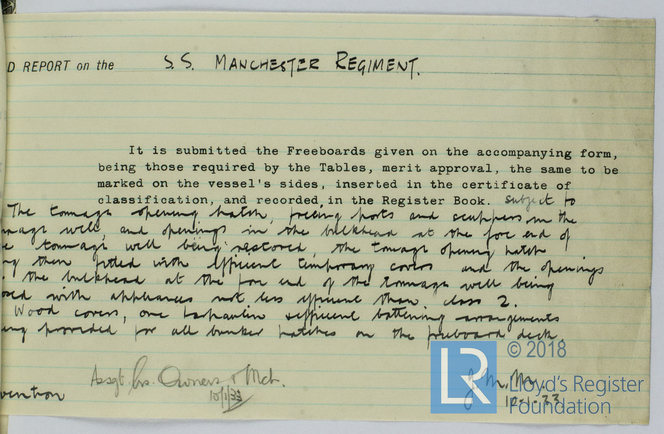 D REPORT on the S.S. MANCHESTER REGIMENT.
It is submitted the Freeboards given on the accompanying form,
being those required by the Tables, merit approval, the same to be
marked on the vessel's sides, inserted in the certificate of
classification, and recorded, in the Register Book. subject to
The tonnage opening hatch, freeing ports and scuppers in the
nnage well, and openings in the bulkhead at the fore end of
e tonnage well being restored, the tonnage opening hatch
ng then fitted with efficient temporary covers and the openings
the bulkhead at the fore end of the tonnage well being
osed with appliances not less efficient than class 2.
Wood covers, one tarpaulin & efficient battening arrangements
ing provided for all bunker hatches on the freeboard deck
Assgt. Owners & Mch.
10/1/33
J. M. M.
10-1-33
vention
LR
© 2018
Lloyd's Register
Foundation